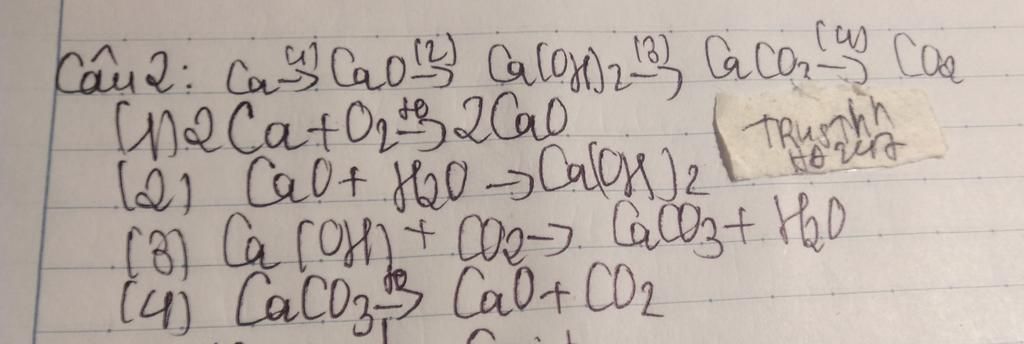 Câu 2: Ca (1)→ CaO (2)→ Ca(OH)2 (3)→ CaCO2 (4)→ CO2
(1) 2Ca + O2 to→ 2CaO
(2) CaO + H2O → Ca(OH)2
(3) Ca(OH) + CO2 → CaCO3 + H2O
(4) CaCO3 to→ CaO + CO2